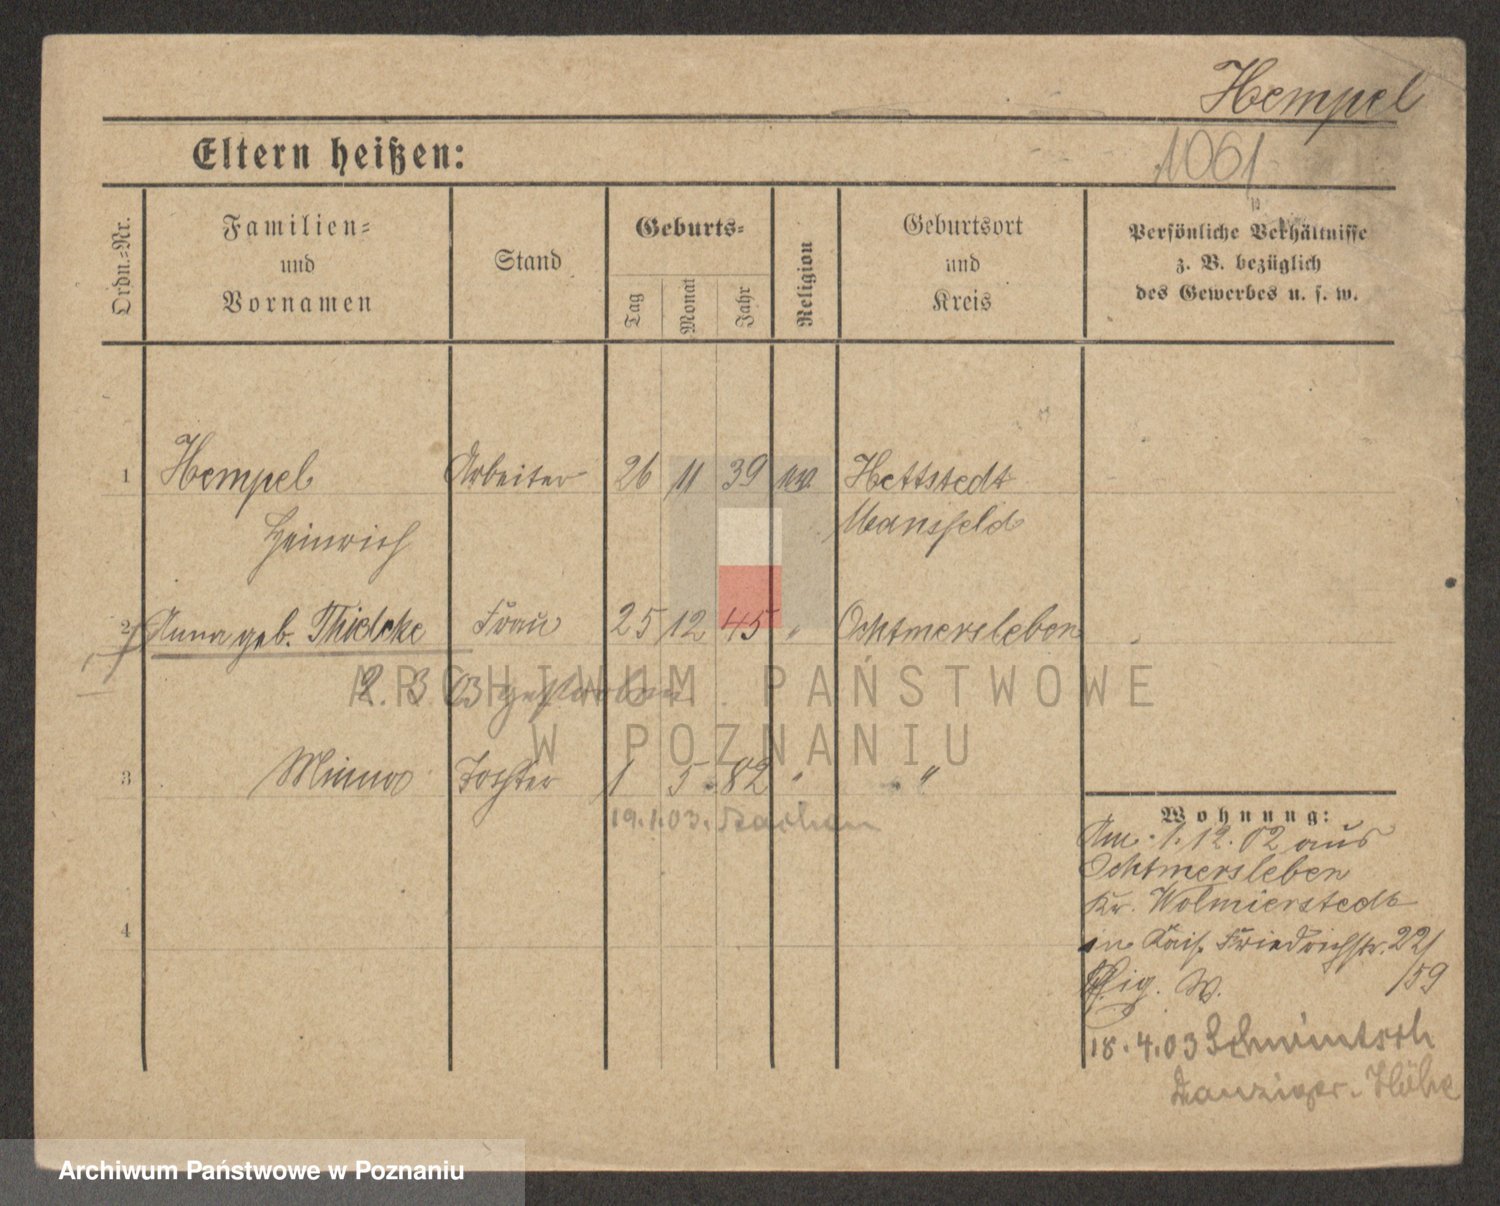 Hempel
1061
Eltern heißen:
Ordn.-Nr.
Familien-
und
Vornamen
Stand
Geburts-
Tag
Monat
Jahr
Religion
Geburtsort
und
Kreis
Persönliche Verhältnisse
z. B. bezüglich
des Gewerbes u. s. w.
1 Hempel Arbeiter 26 11 39 Hettstedt
Heinrich Mansfeld
2 Anna geb. Thielcke Frau 25 12 45 " Ochtmersleben
2. 3 03 gestorben
3 Minna Tochter 1 5. 82 " "
19.1.03. Aachen
4
Wohnung:
Am 1.12.02 aus
Ochtmersleben
Kr. Wolmierstedt
in Kais. Friedrichstr. 22/
/59
W.
18.4.03 Schwintsch
Danziger. Höhe
ARCHIWUM PAŃSTWOWE
W POZNANIU
Archiwum Państwowe w Poznaniu